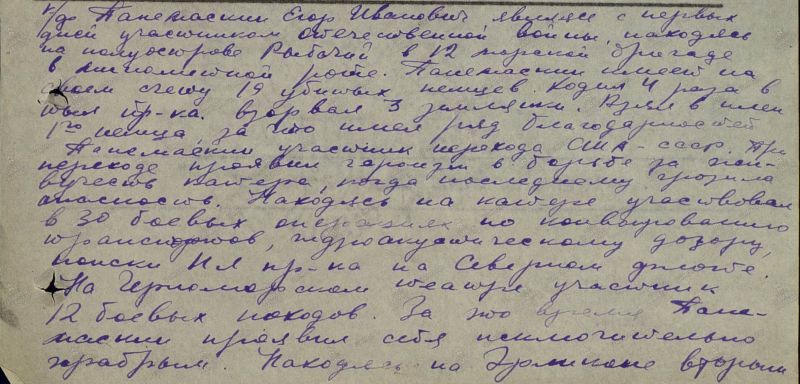 к/ф Панемаскин Егор Иванович являлся с первых
дней участником отечественной войны, находясь
на полуострове Рыбачий в 12 морской бригаде
в минометной роте. Панемаскин имеет на
своем счету 19 убитых немцев. Ходил 4 раза в
тыл пр-ка. взорвал 3 землянки. Взял в плен
1го немца, за что имел ряд благодарностей
Панемаскин участник перехода США - ссср. При
переходе проявил героизм в борьбе за жи-
вучесть катера, когда последнему грозила
опасность. Находясь на катере участвовал
в 30 боевых операциях по конвоированию
транспортов, гидроакустическому дозору,
поиски пл пр-ка на Северном флоте.
На Черноморском театре участник
12 боевых походов. За это время Пане-
маскин проявил себя исключительно
храбрым. Находясь на Эрликоне вторым